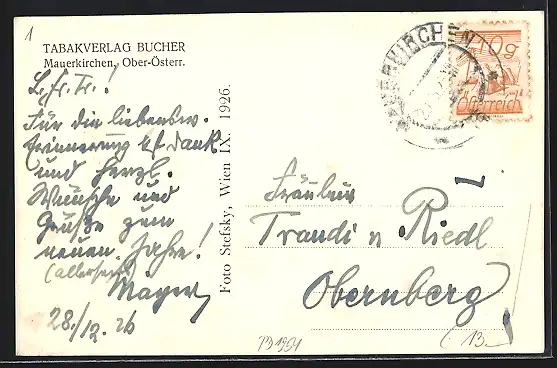 1
TABAKVERLAG BUCHER
Mauerkirchen, Ober-Österr.
L. Fr. Tr.!
Für die liebensw.
Erinnerung bst. Dank
und herzl.
Wünsche und
Grüße zum
neuen Jahre!
(allerseits)
Mayer
28./12. 26
Foto Stefsky, Wien IX. 1926.
MAUERKIRCHEN
10 g
Österreich
Fräulein
Traudi v Riedl
Obernberg
13.-